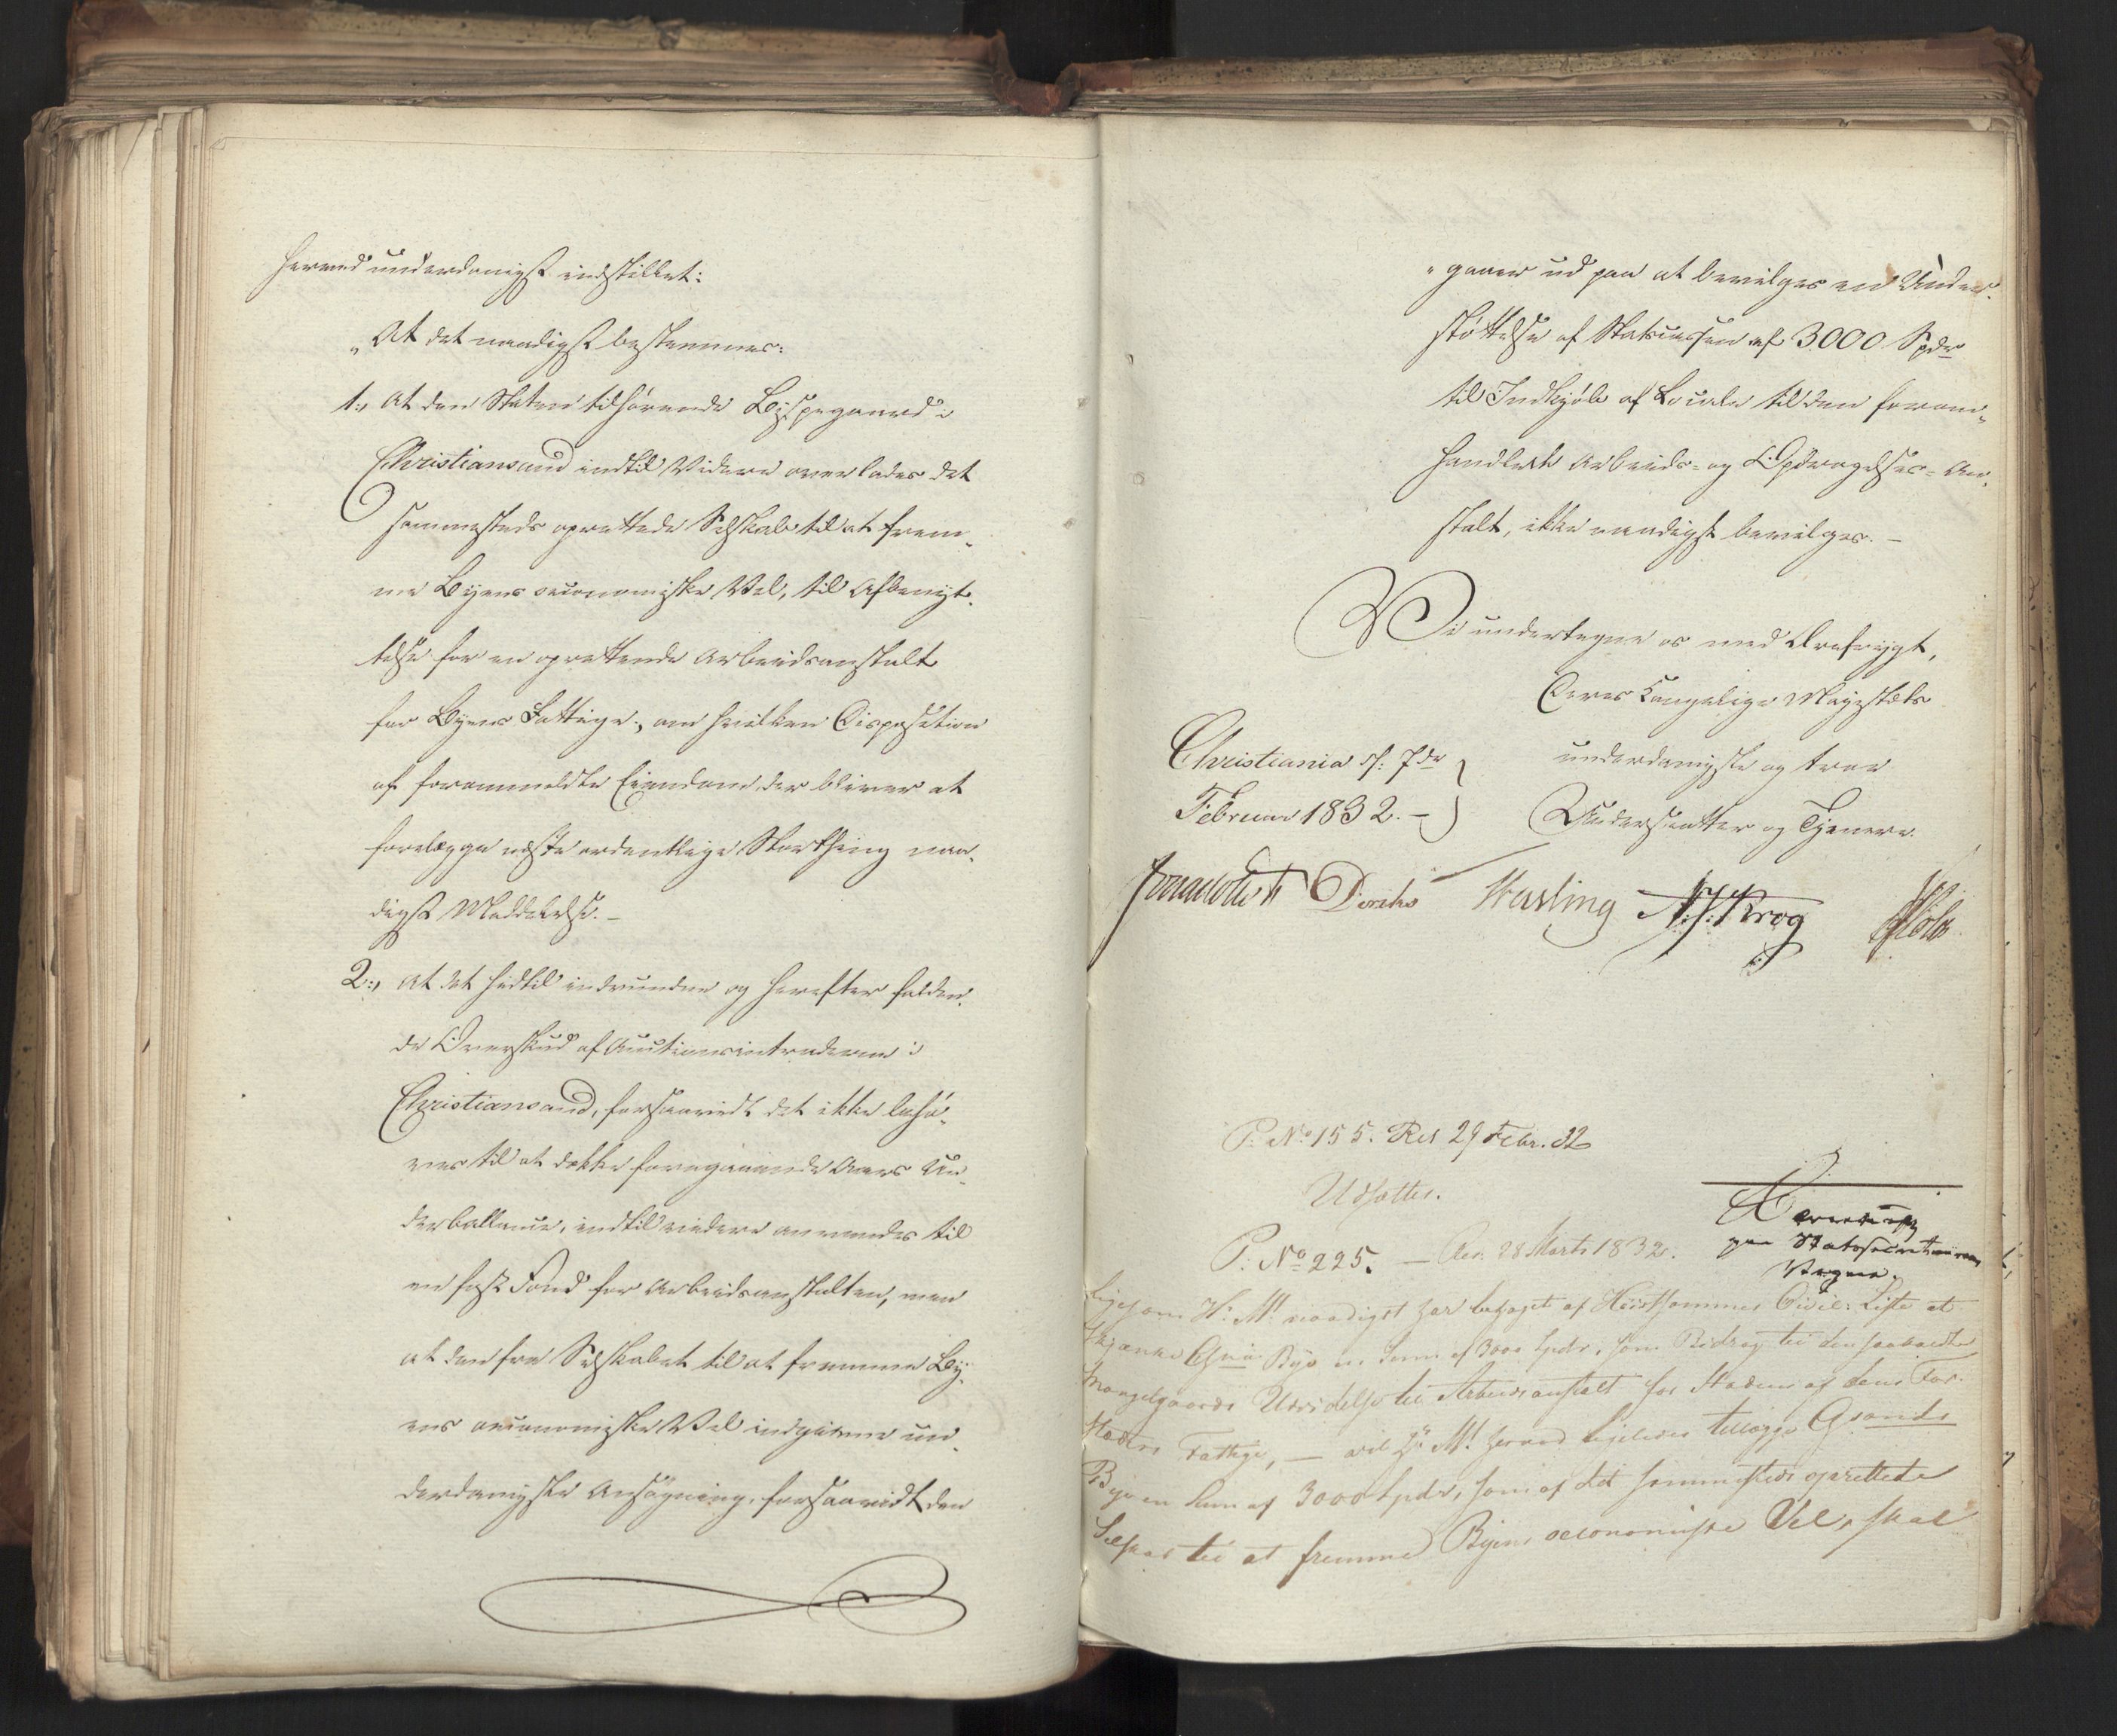 herved underdanigst indstillet:
„At det naadigst bestemmes:
1., At den Staten tilhørende Bispegaard i
Christiansand indtil Videre overlades det
sammesteds oprettede Selskab til at frem-
me Byens oeconomiske Vel, til Afbenyt-
telse for en oprettende Arbeidsanstalt
for Byens Fattige, om hvilken Disposition
af forommeldte Eiendom der bliver at
forelægge næste ordentlige Storthing naa-
digst Meddelelse. –
2., At det hidtil indvundne og herefter falden-
de Overskud af Auctionsintraderne i
Christiansand, forsaavidt det ikke behø-
ves til at dække foregaaende Aars Un-
derballance, indtil videre anvendes til
en fast Fond for Arbeidsanstalten, men
at den fra Selskabet til at fremme By-
ens oeconomiske Vel indgivne un-
derdanigste Ansøgning, forsaavidt den
„gaaer ud paa at bevilges en Under-
støttelse af Statscassen af 3000 Spdr
til Indkjøb af Locale til den foromm-
handlede Arbeids- og Opdragelses-An-
stalt, ikke naadigst bevilges. –
Vi undertegne os med Ærefrygt,
Deres Kongelige Majestæts
Christiania d: 7de underdanigste og troe
Februar 1832. – Undersaatter og Tjenere.
Diriks Harling Krog Holst
P. No 155. Res 29 Febr. 32
Udsættes.
P. No 225. – Res. 28 Marts 1832.
paa Statssecretairens
Vegne.
Ligesom H. M. naadigst har behaget af Høistsammes Civil-Liste at
skjænke Chria Bye en Sum af 3000 Spdr, som Bidrag til den saakaldte
Mangelsgaards Udvidelse til Arbeidsanstalt for Stadens og dens For-
stæders Fattige, – vil H. M. herved ligeledes tillægge Csands
Bye en Sum af 3000 Spdr, som af det sammesteds oprettede
Selskab til at fremme Byens oeconomiske Vel, skal